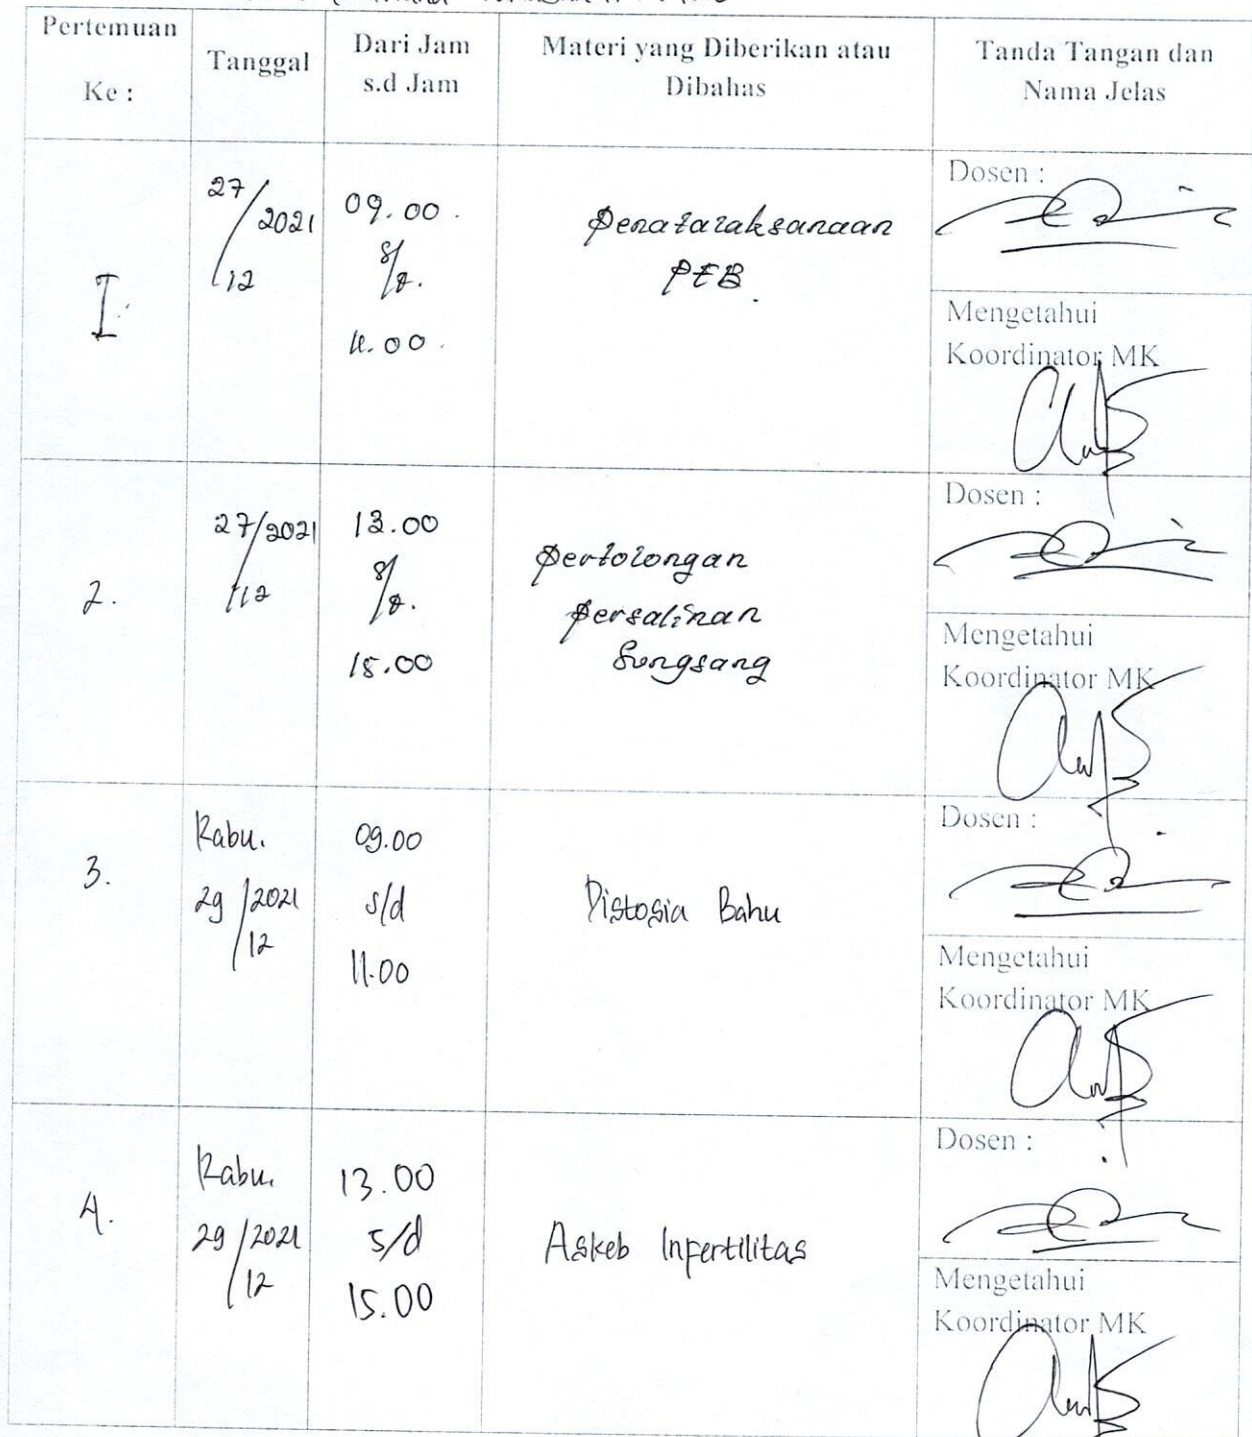 Pertemuan
Ke :
Tanggal
Dari Jam
s.d Jam
Materi yang Diberikan atau
Dibahas
Tanda Tangan dan
Nama Jelas
I
27/12 2021
09.00
s/d.
11.00
Penatalaksanaan
PEB
Dosen :
Mengetahui
Koordinator MK
2.
27/12 2021
13.00
s/d.
15.00
Pertolongan
Persalinan
Sungsang
Dosen :
Mengetahui
Koordinator MK
3.
Rabu.
29/12 2021
09.00
s/d
11.00
Distosia Bahu
Dosen :
Mengetahui
Koordinator MK
4.
Rabu.
29/12 2021
13.00
s/d
15.00
Askeb Infertilitas
Dosen :
Mengetahui
Koordinator MK